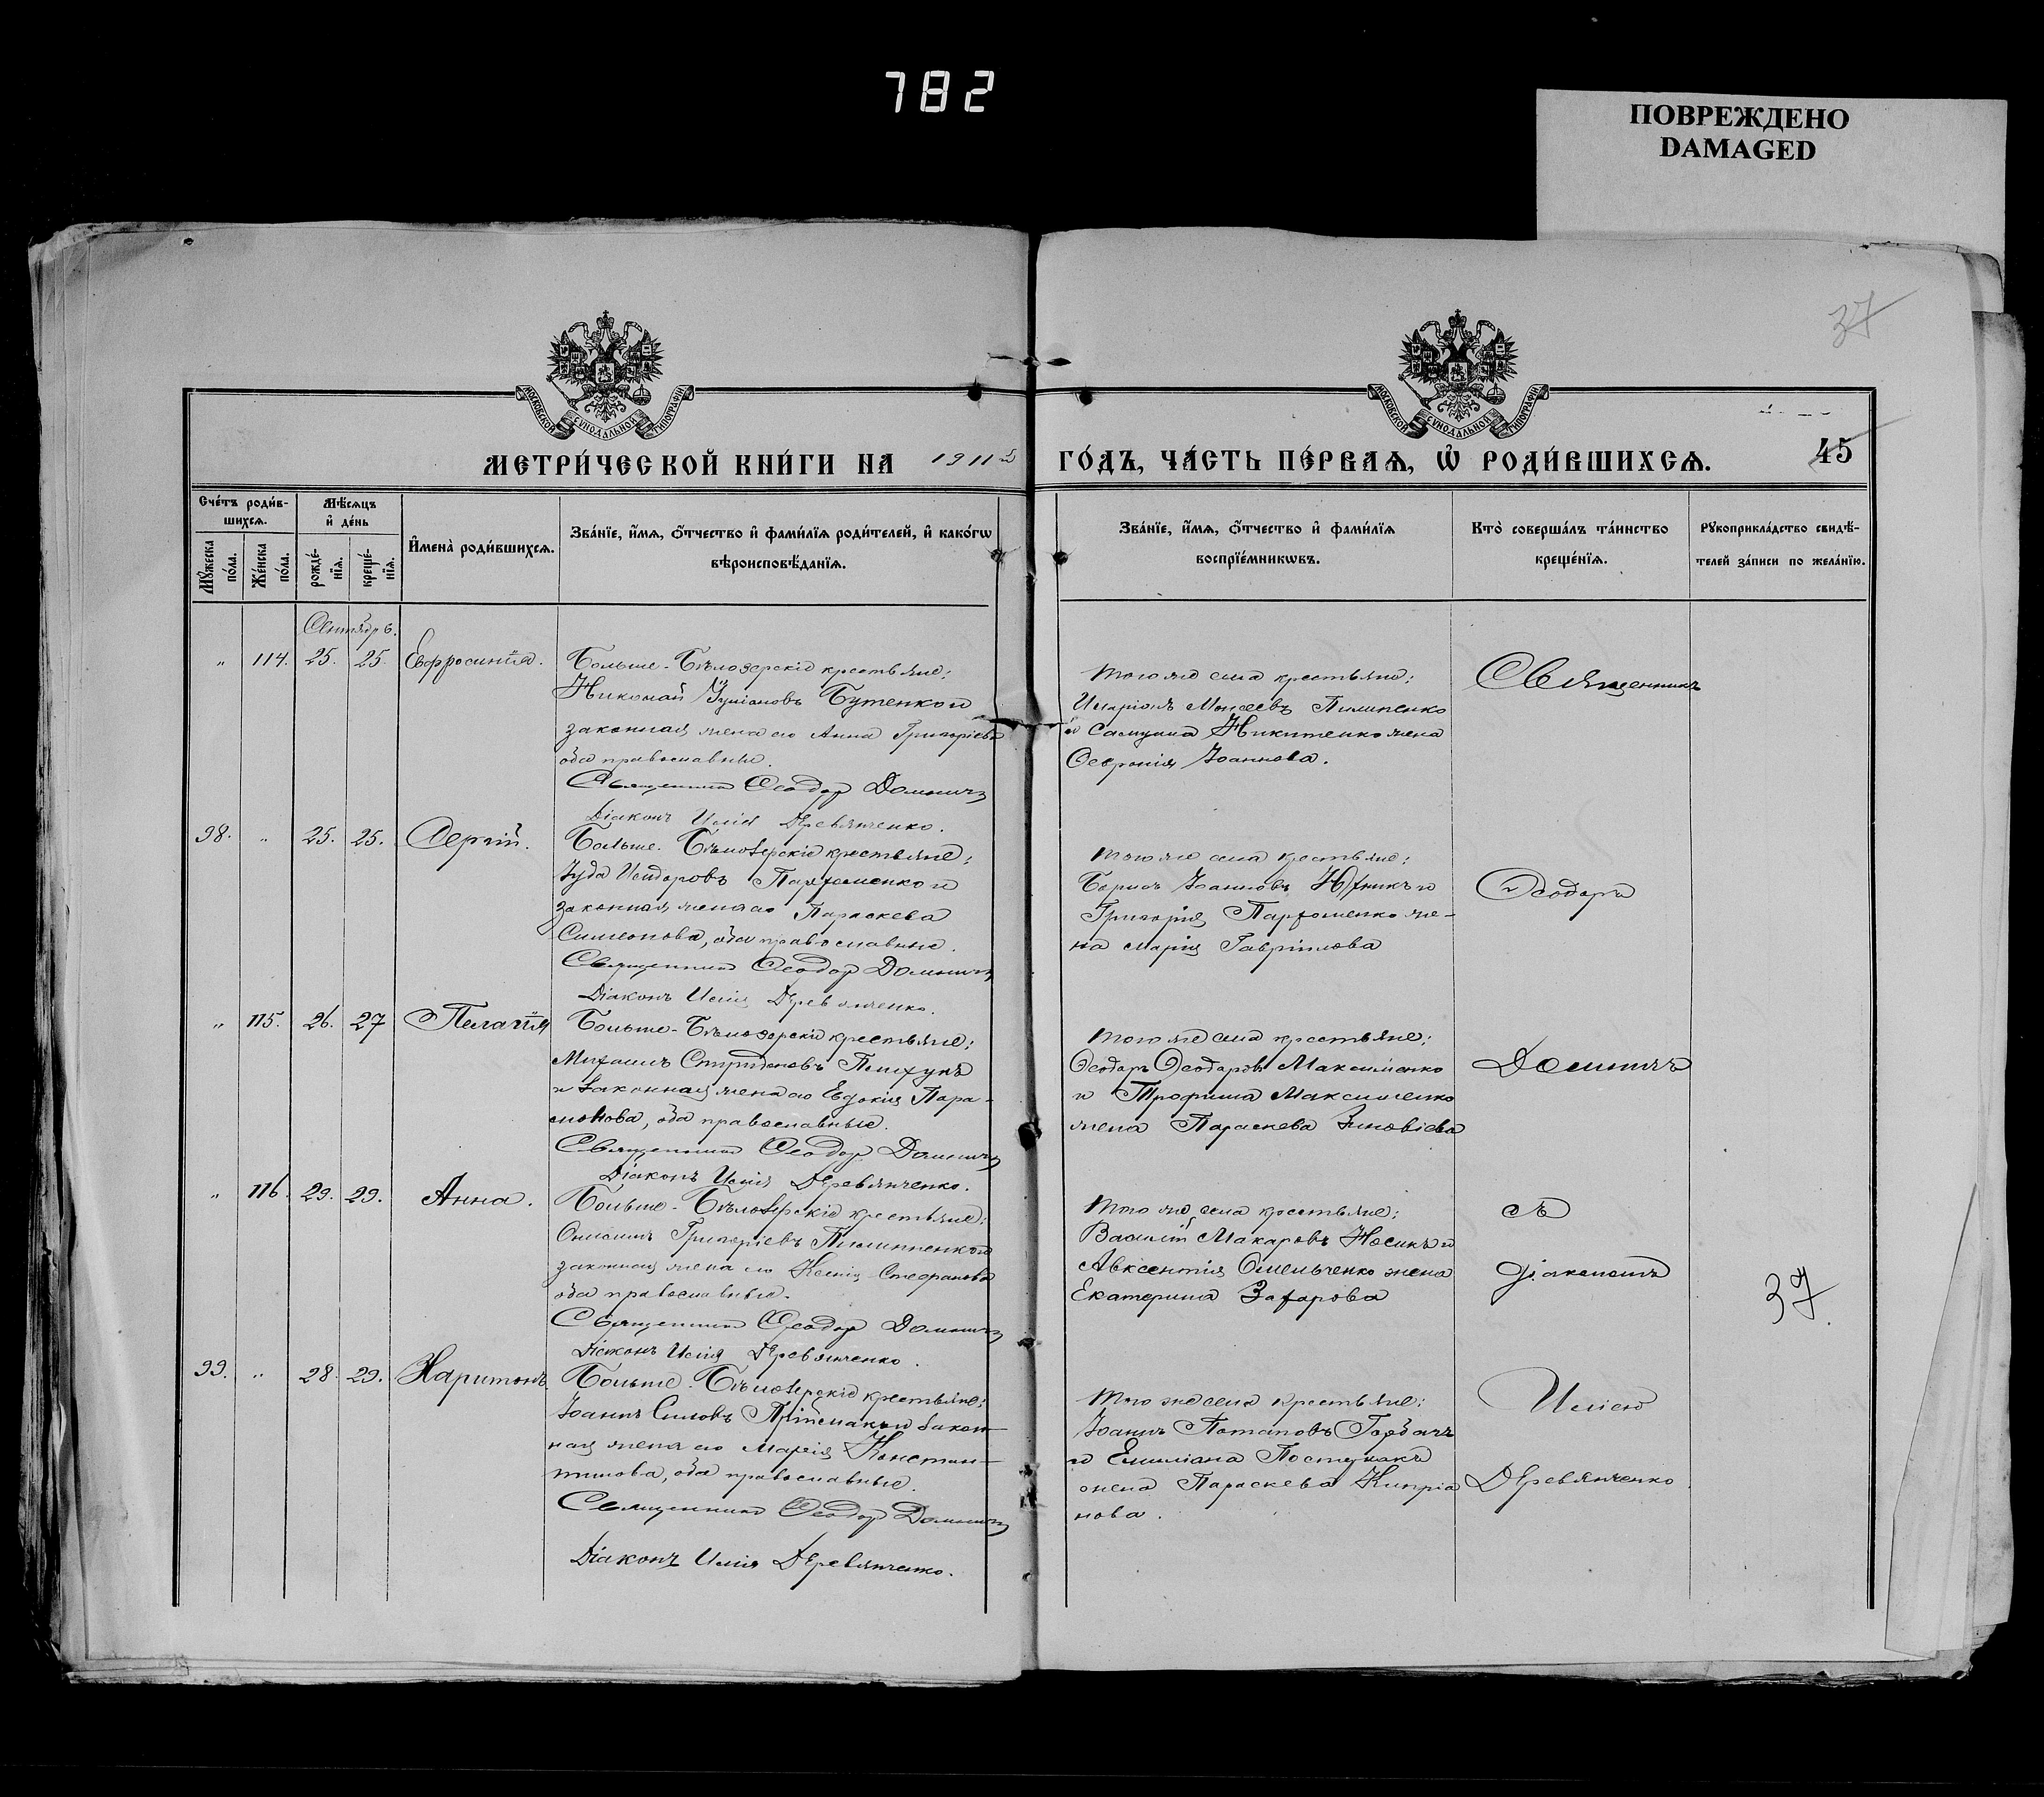 782
ПОВРЕЖДЕНО
DAMAGED
37
МОСКОВСКОЙ СѴНОДАЛЬНОЙ ТИПОГРАФІИ
МОСКОВСКОЙ СѴНОДАЛЬНОЙ ТИПОГРАФІИ
МЕТРИ́ЧЕСКОЙ КНИ́ГИ НА 1911
ГО́ДЪ, ЧА́СТЬ ПЕ́РВАѦ, Ѡ҆ РОДИ́ВШИХСѦ.
45
Сче́тъ роди́в-
шихсѧ.
Мѣ́сѧцъ
и҆ де́нь
Мꙋ́жеска
по́ла.
Же́нска
по́ла.
рожде́-
нїѧ.
креще́-
нїѧ.
И҆мена̀ роди́вшихсѧ.
Зва́нїе, и҆́мѧ, ѻ҆́тчество и҆ фами́лїѧ роди́телей, и҆ како́гѡ
вѣроисповѣ́данїѧ.
Зва́нїе, и҆́мѧ, ѻ҆́тчество и҆ фами́лїѧ
воспрїе́мникѡвъ.
Кто̀ соверша́лъ та́инство
креще́нїѧ.
Рꙋкоприкла́дство свидѣ́-
телей за́писи по жела́нїю.
Сентябрь.
" 114. 25. 25. Евфросинія.
Больше-Бѣлозерскіе крестьяне:
Николай Іуліановъ Бутенко и
законная жена его Анна Григоріева
оба православные.
Священникъ Ѳеодоръ Доминичъ
Діаконъ Илія Деревянченко.
тогоже села крестьяне:
Иларіонъ Моисеевъ Пилипенко
и Самуила Никитенко жена
Февронія Іоаннова.
Священникъ
98. " 25. 25. Сергій.
Больше-Бѣлозерскіе крестьяне:
Іуда Исидоровъ Пархоменко и
законная жена его Параскева
Симеонова, оба православные.
Священникъ Ѳеодоръ Доминичъ
Діаконъ Илія Деревянченко.
тогоже села крестьяне:
Борисъ Іоанновъ
Григорія Пархоменко же-
на Марія Гавріилова
Ѳеодоръ
" 115. 26. 27 Пелагія
Больше-Бѣлозерскіе крестьяне:
Михаилъ Спиридоновъ
и законная жена его Евдокія Пара-
монова, оба православные.
Священникъ Ѳеодоръ Доминичъ
Діаконъ Илія Деревянченко.
тогоже села крестьяне:
Ѳеодоръ Ѳеодоровъ Максименко
и Трофима Максименко
жена Параскева Зиновіева
Доминичъ
" 116. 29. 29. Анна.
Больше-Бѣлозерскіе крестьяне:
Онисимъ Григоріевъ Пилипенко и
законная жена его Ксенія Стефанова
оба православные.
Священникъ Ѳеодоръ Доминичъ
Діаконъ Илія Деревянченко.
того же села крестьяне:
Василій Макаровъ Носикъ и
Авксентія Омельченко жена
Екатерина Захарова
съ
діакономъ
37.
99. " 28. 29. Харитонъ.
Больше-Бѣлозерскіе крестьяне:
Іоаннъ Симовъ Пріймакъ и закон-
ная жена его Марія Констан-
тинова, оба православные.
Священникъ Ѳеодоръ Доминичъ
Діаконъ Илія Деревянченко.
того же села крестьяне:
Іоаннъ Потаповъ Горбачъ
и Емиліана
жена Параскева Кипріа
нова.
Иліею
Деревянченко